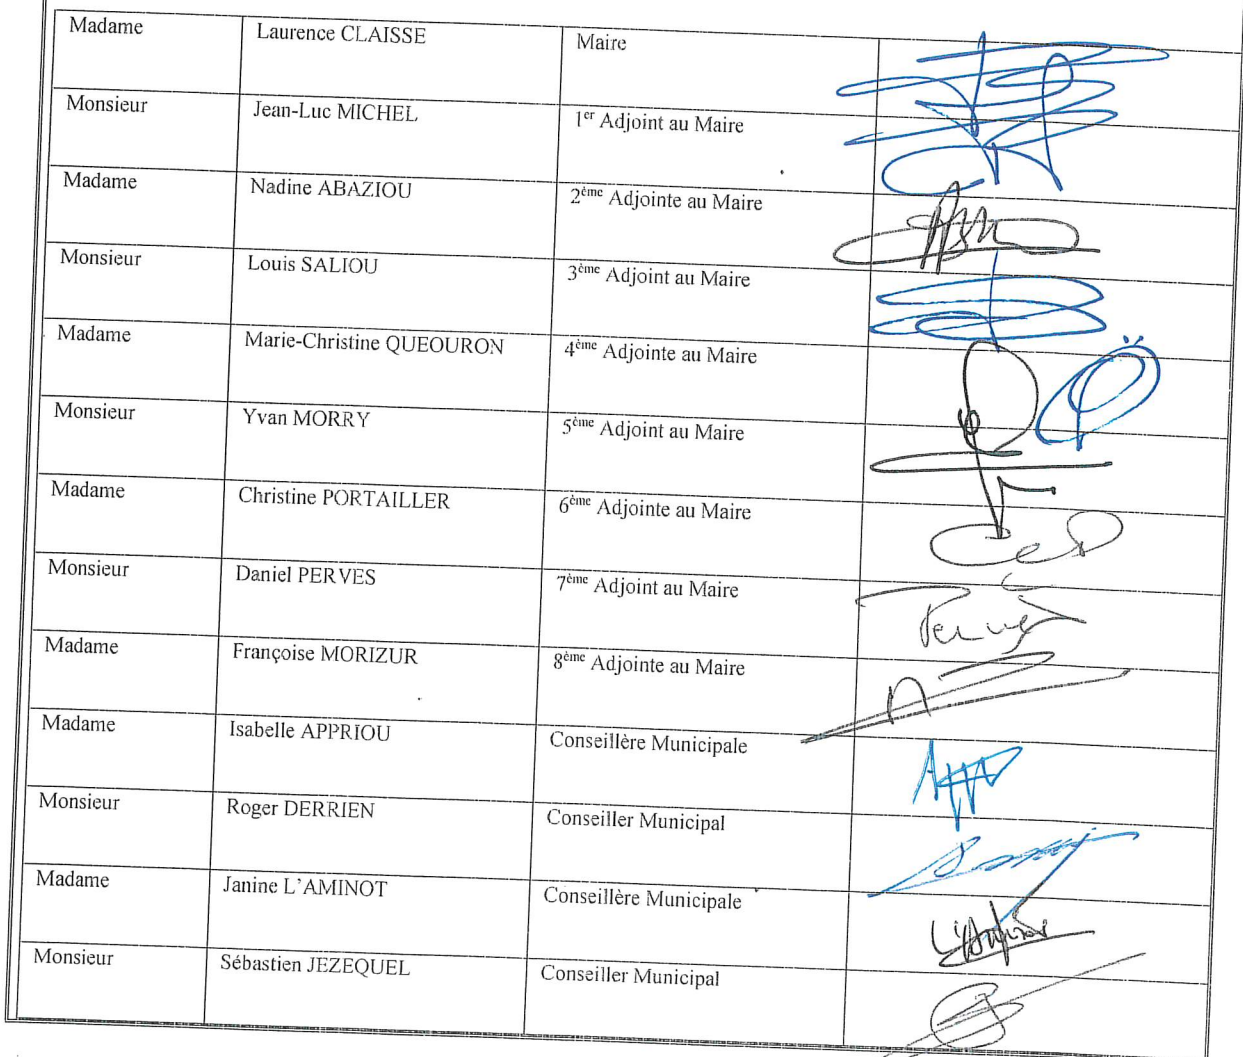 Madame Laurence CLAISSE Maire
Monsieur Jean-Luc MICHEL 1er Adjoint au Maire
Madame Nadine ABAZIOU 2ème Adjointe au Maire
Monsieur Louis SALIOU 3ème Adjoint au Maire
Madame Marie-Christine QUEOURON 4ème Adjointe au Maire
Monsieur Yvan MORRY 5ème Adjoint au Maire
Madame Christine PORTAILLER 6ème Adjointe au Maire
Monsieur Daniel PERVES 7ème Adjoint au Maire
Madame Françoise MORIZUR 8ème Adjointe au Maire
Madame Isabelle APPRIOU Conseillère Municipale
Monsieur Roger DERRIEN Conseiller Municipal
Madame Janine L'AMINOT Conseillère Municipale
Monsieur Sébastien JEZEQUEL Conseiller Municipal